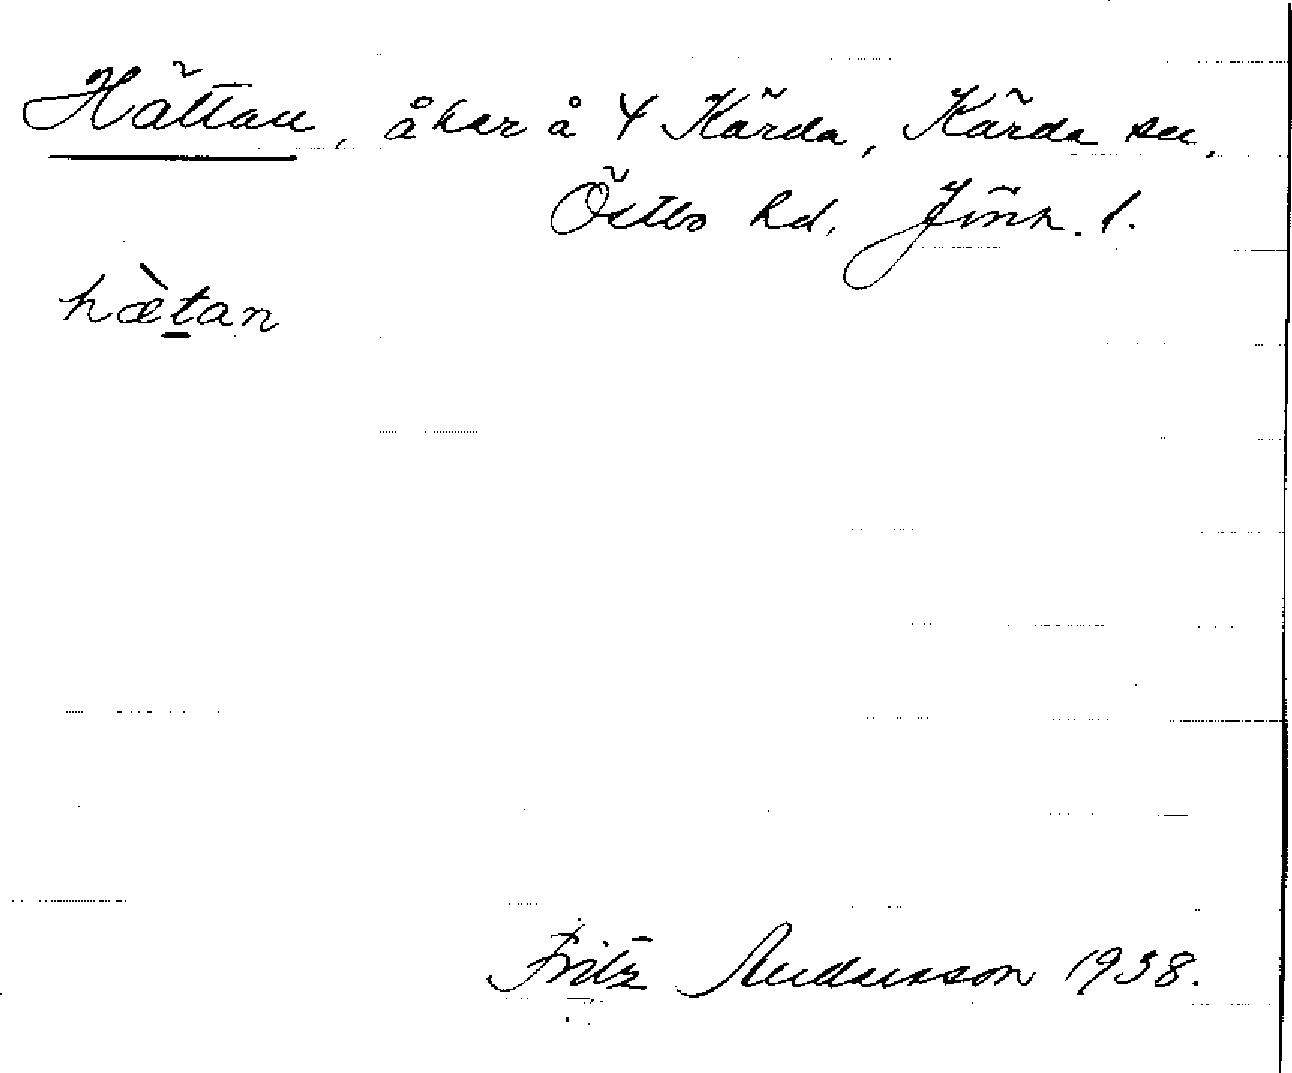 Hättan, åker å 4 Kärda, Kärda sn,
Östbo hd, Jönk. l.
hætan
Fritz Andersson 1938.